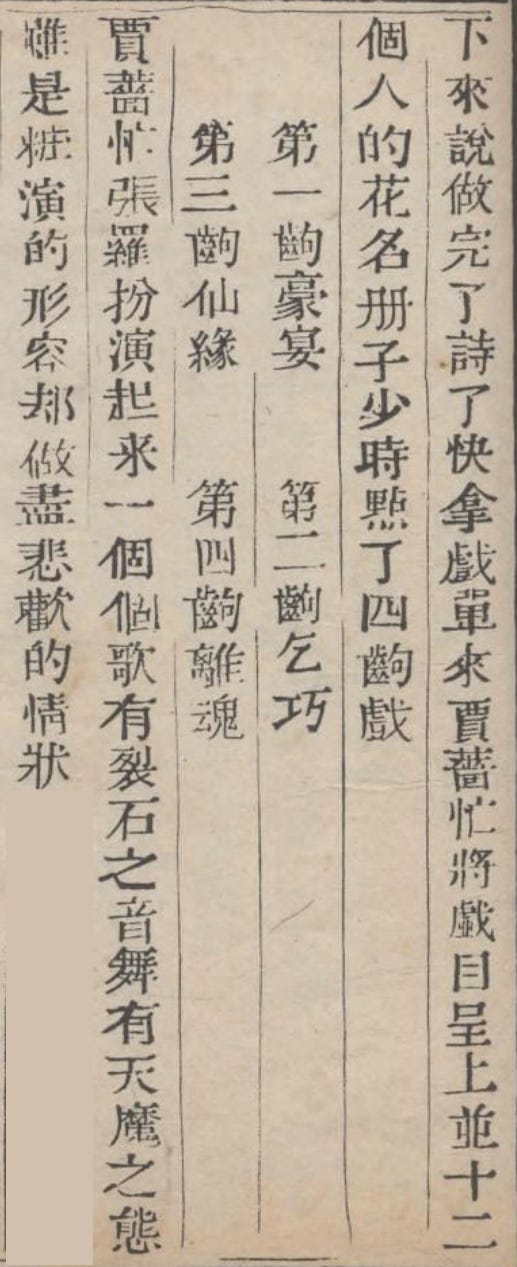 下來說做完了詩了快拿戲單來賈薔忙將戲目呈上並十二
個人的花名册子少時點了四齣戲
第一齣豪宴 第二齣乞巧
第三齣仙緣 第四齣離魂
賈薔忙張羅扮演起来一個個歌有裂石之音舞有天魔之態
雖是粧演的形容却做盡悲歡的情狀